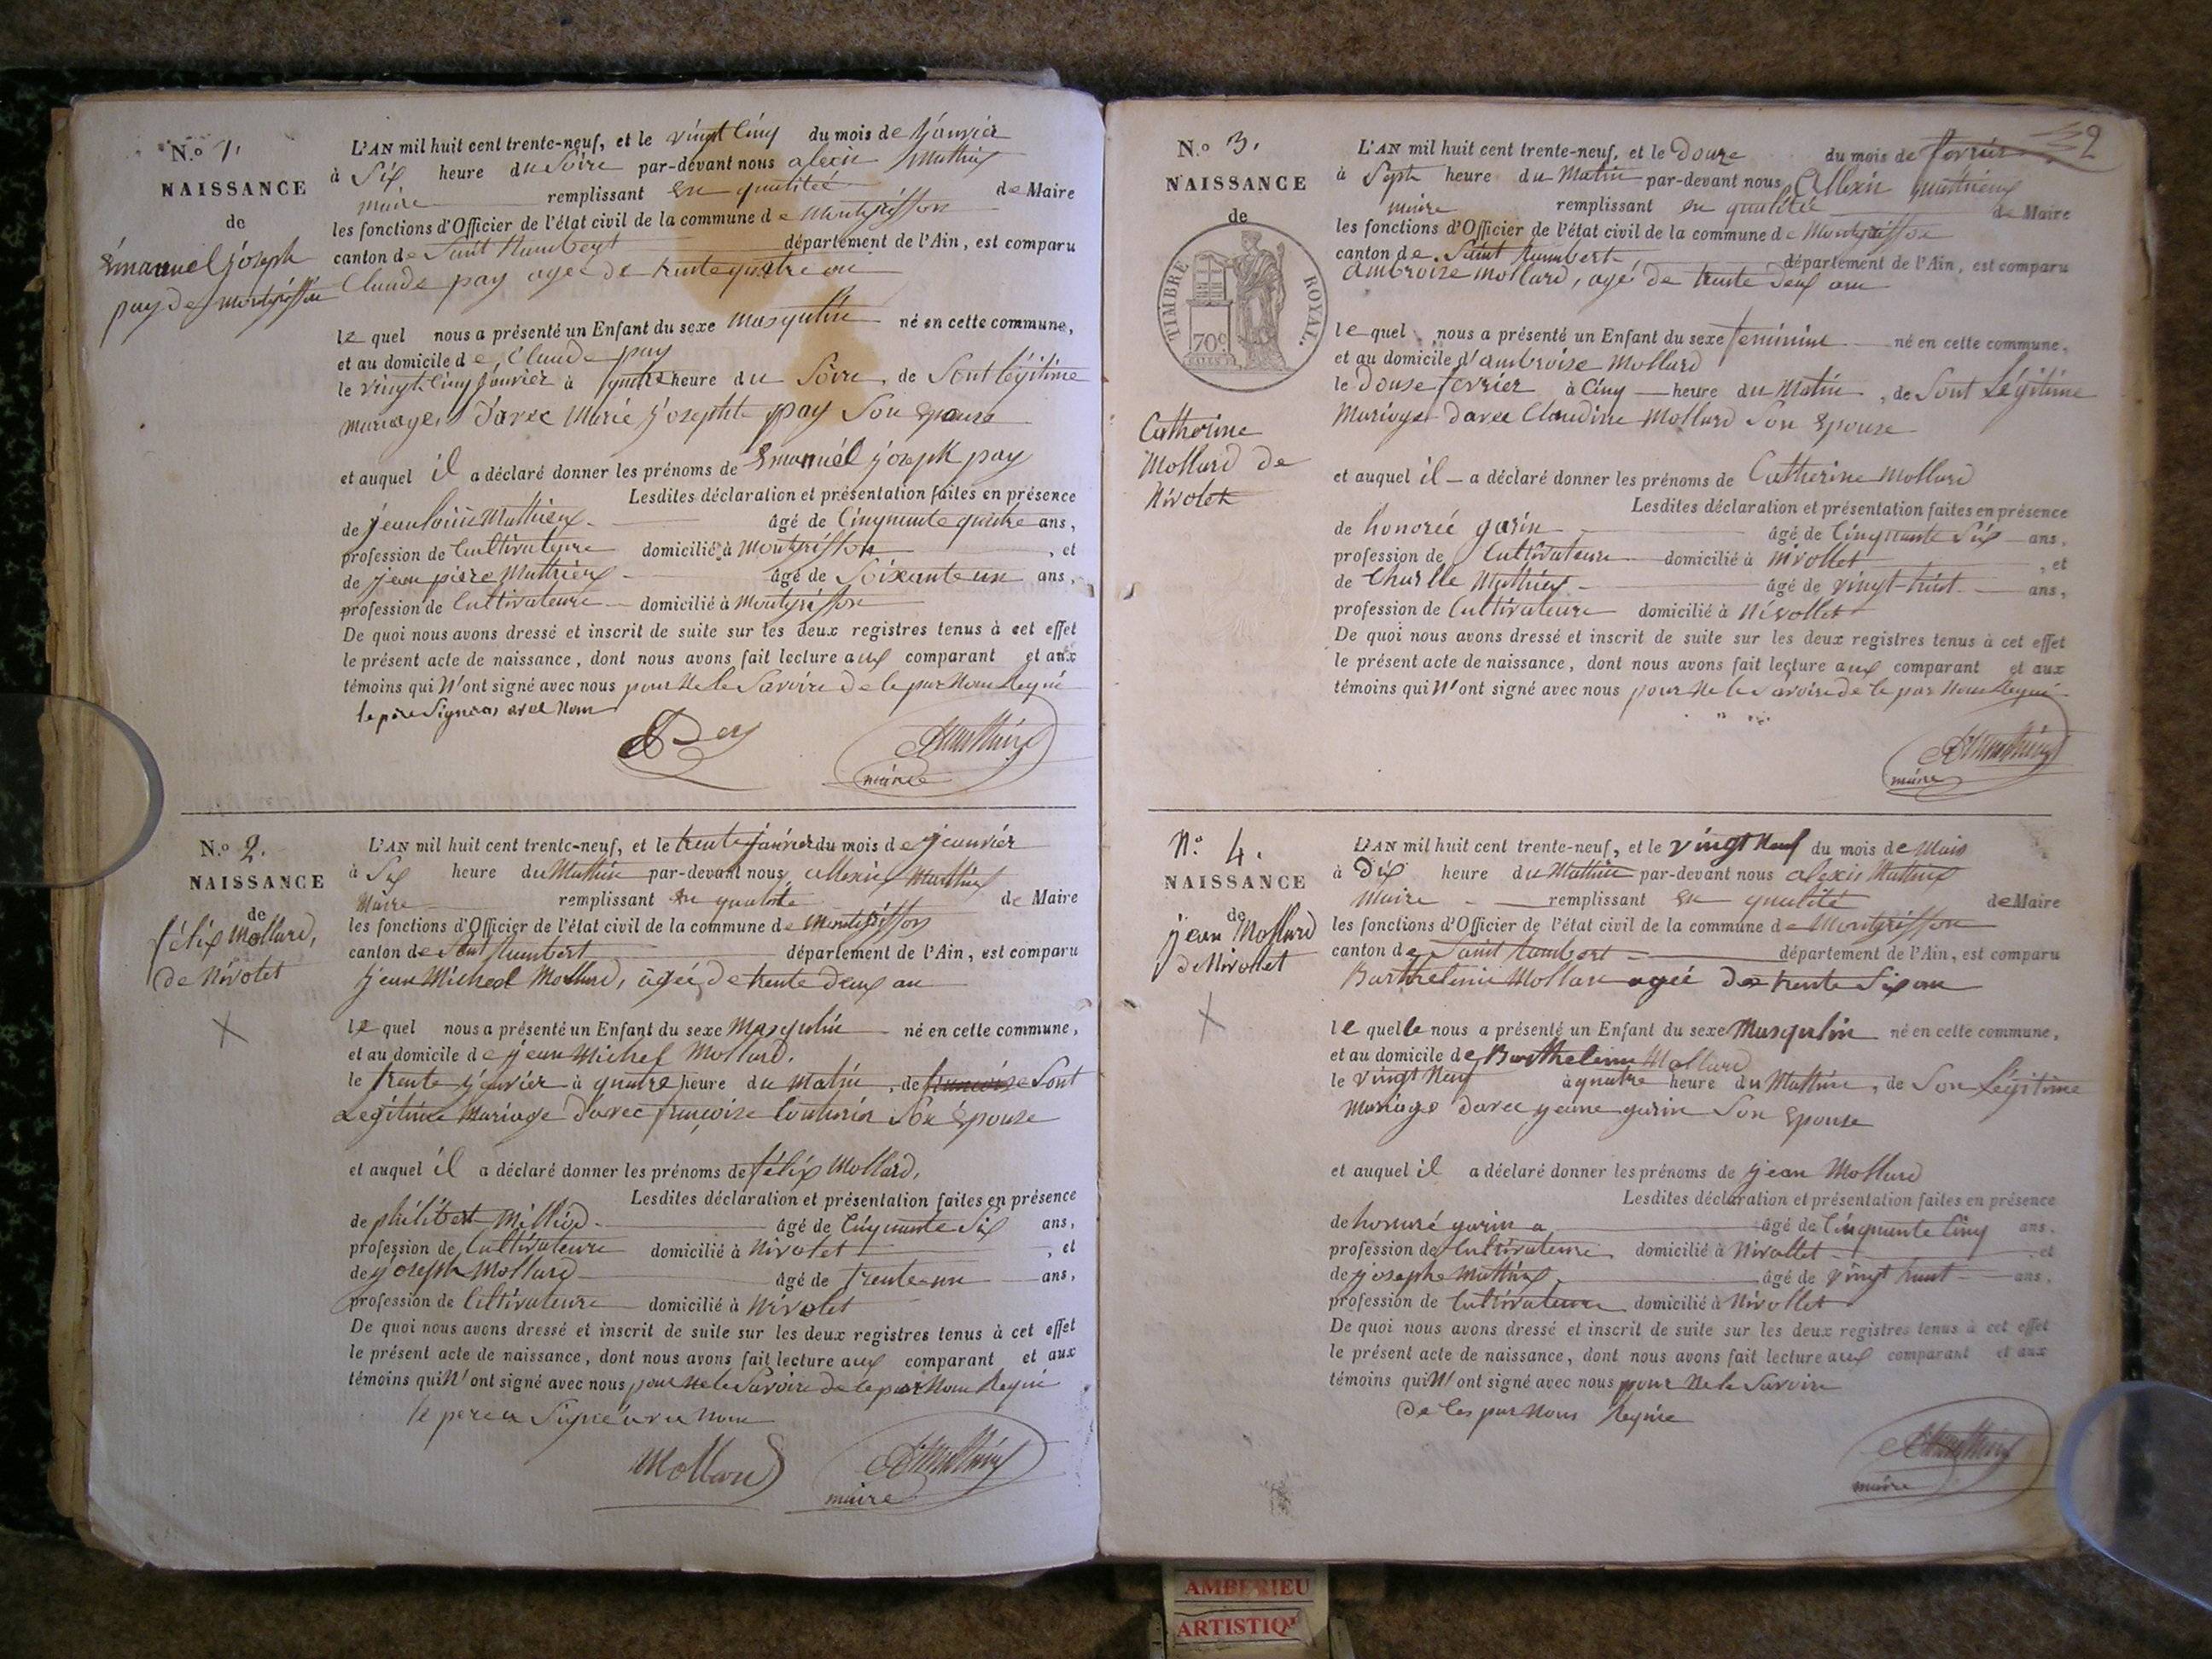 N.o 1.
NAISSANCE
de
Émanuel joseph
pay de montgriffon
L'AN mil huit cent trente-neuf, et le vingt Cinq du mois de Janvier
à Six heure du Soire par-devant nous alexis Mathieu
maire remplissant en qualitée de Maire
les fonctions d'Officier de l'état civil de la commune de Montgriffon
canton de Saint Rambert département de l'Ain, est comparu
Claude pay agée de trente quatre an
le quel nous a présenté un Enfant du sexe masqulin né en cette commune,
et au domicile de Claude pay
le vingt Cinq janvier à quatre heure du Soire, de Sont légitime
mariage d'avec Marie josephte pay Son Epouse
et auquel il a déclaré donner les prénoms de Emanuél joseph pay
Lesdites déclaration et présentation faites en présence
de jean louis Mathieux âgé de Cinquante quatre ans,
profession de Cultivateure domicilié à Montgriffon, et
de jean pierre Mathieux âgé de Soixante un ans,
profession de Cultivateure domicilié à Montgriffon
De quoi nous avons dressé et inscrit de suite sur les deux registres tenus à cet effet
le présent acte de naissance, dont nous avons fait lecture aux comparant et aux
témoins qui N'ont signé avec nous pour Ne le Savoire de le par Nous Requi
le père avec Nous
maire
N.o 2.
NAISSANCE
de
félix Mollard,
de Nivolet
L'AN mil huit cent trente-neuf, et le trente janvier du mois de jeanvier
à Six heure du Mathin par-devant nous allexis Mathieu
Maire remplissant en qualitée de Maire
les fonctions d'Officier de l'état civil de la commune de Montgriffon
canton de Saint Rambert département de l'Ain, est comparu
jean Michel Mollard, âgée de trente deux an
le quel nous a présenté un Enfant du sexe Masqulin né en cette commune,
et au domicile de jean Michel Mollard.
le trente janvier à quatre heure du Matin, de francoise Sont
Légitime Mariage d'avec françoise Couturier Son Epouse
et auquel il a déclaré donner les prénoms de félix Mollard,
Lesdites déclaration et présentation faites en présence
de philibert Millied âgé de Cinquante Six ans,
profession de Cultivateure domicilié à Nivolet, et
de joseph Mollard âgé de trente un ans,
profession de Cultivateure domicilié à Nivolet
De quoi nous avons dressé et inscrit de suite sur les deux registres tenus à cet effet
le présent acte de naissance, dont nous avons fait lecture aux comparant et aux
témoins qui N'ont signé avec nous pour Ne le Savoire de le par Nous Requi
le pere a Signé avec nous
Mollard
maire
2
N.o 3.
NAISSANCE
de
TIMBRE ROYAL.
70c
Catherine
Mollard de
Nivolet
L'AN mil huit cent trente-neuf, et le Douze du mois de fevrier
à Sept heure du Matin par-devant nous Allexis Mathieux
Maire remplissant en qualitée de Maire
les fonctions d'Officier de l'état civil de la commune de Montgriffon
canton de Saint Rambert, département de l'Ain, est comparu
Ambroise Mollard, agé de trente Deux ans
le quel nous a présenté un Enfant du sexe feminine né en cette commune,
et au domicile d'ambroise Mollard
le Douse fevrier à Cinq heure du Matin, de Sont Légitime
Mariage d'avec Claudine Mollard Son Epouse
et auquel il a déclaré donner les prénoms de Catherine Mollard
Lesdites déclaration et présentation faites en présence
de honoreé garin âgé de Cinquante Six ans,
profession de Cultivateure domicilié à Nivollet, et
de Charlle Mathieu âgé de vingt huit ans,
profession de Cultivateure domicilié à Nivollet
De quoi nous avons dressé et inscrit de suite sur les deux registres tenus à cet effet
le présent acte de naissance, dont nous avons fait lecture aux comparant et aux
témoins qui N'ont signé avec nous pour Ne le Savoire de le par Nous Requi
maire
N.o 4.
NAISSANCE
de
jean Mollard
de Nivollet
L'AN mil huit cent trente-neuf, et le vingt Neuf du mois de Mais
à Dix heure du Mathin par-devant nous alexis Mathieu
Maire remplissant en qualité de Maire
les fonctions d'Officier de l'état civil de la commune de Montgriffon
canton de Saint Rambert département de l'Ain, est comparu
Barthelemie Mollard agée de trente Six an
le quelle nous a présenté un Enfant du sexe Masqulin né en cette commune,
et au domicile de Barthelemi Mollard
le vingt Neuf à quatre heure du Mathin, de Son Légitime
Mariage d'avec jeanne garin Son Epouse
et auquel il a déclaré donner les prénoms de jean Mollard
Lesdites déclaration et présentation faites en présence
de honnoré garin âgé de Cinquante Cinq ans,
profession de Cultivateure domicilié à Nivollet, et
de josephe Mathieu âgé de vingt huit ans,
profession de Cultivateure domicilié à Nivollet
De quoi nous avons dressé et inscrit de suite sur les deux registres tenus à cet effet
le présent acte de naissance, dont nous avons fait lecture aux comparant et aux
témoins qui N'ont signé avec nous pour Ne le Savoire
de les par Nous Requie
maire
AMBERIEU
ARTISTIQU